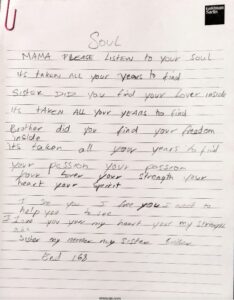 Goldman Sachs
SOUL
MAMA PLEASE LISTEN TO YOUR SOUL
its taken all your years to find
Sister DID you find your Lover inside
ITS TAKEN ALL YOUR YEARS to find
Brother did you find your freedom
inside
its taken all your years to find
your passion your passion
your Lover your strength your
heart your spirit
I see you I love you I need to
help you to live
I love you your my heart your my strength
my Sister
End 168